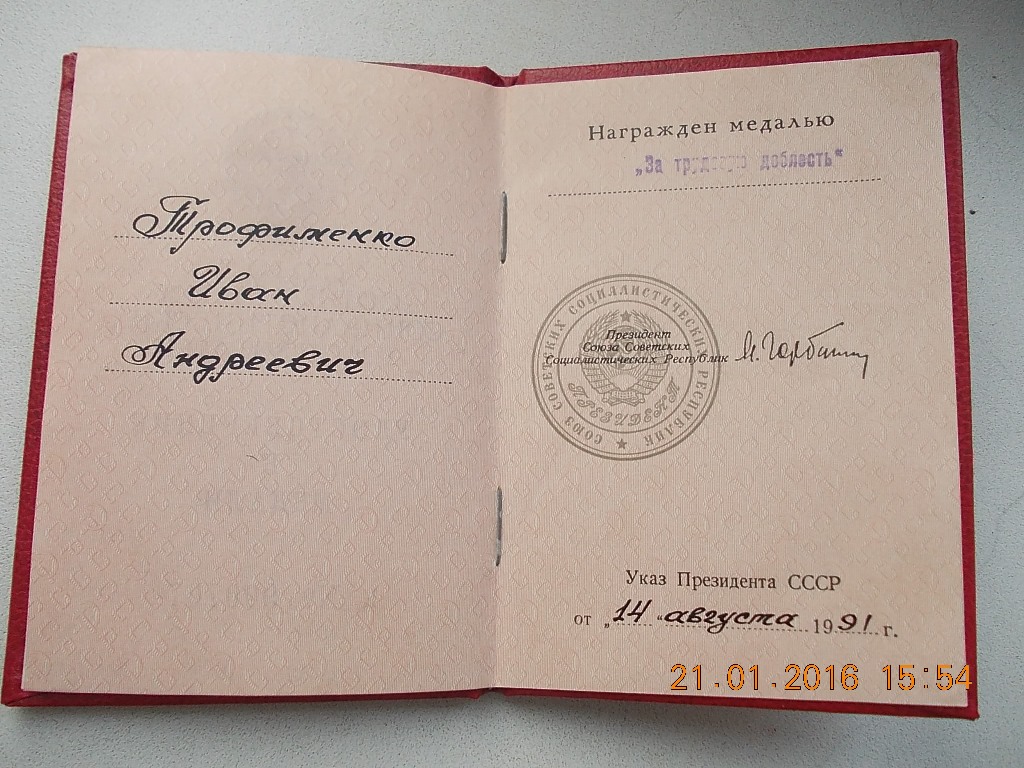 Трофименко
Иван
Андреевич
Награжден медалью
„За трудовую доблесть“
СОЮЗ СОВЕТСКИХ СОЦИАЛИСТИЧЕСКИХ РЕСПУБЛИК
Президент
Союза Советских
Социалистических Республик
М. Горбачев
ПРЕЗИДЕНТ
Указ Президента СССР
от „14“ августа 1991 г.
21.01.2016 15:54